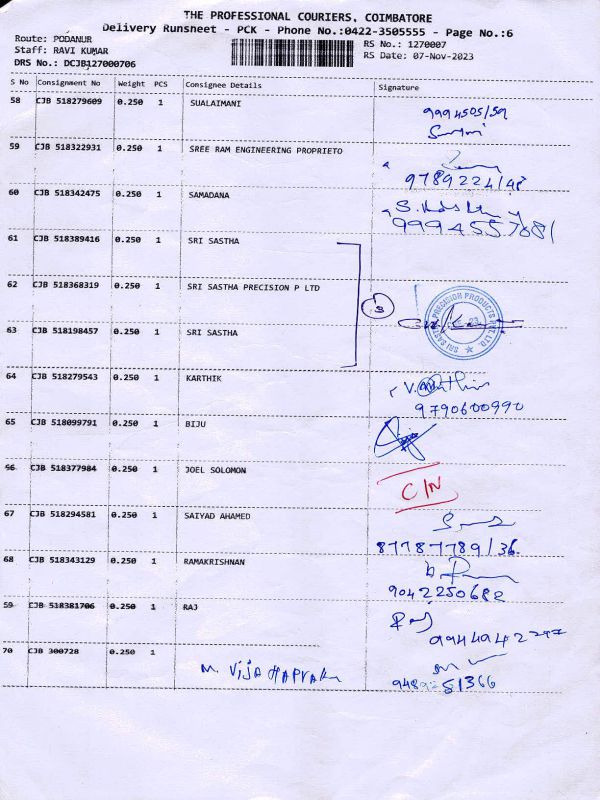 THE PROFESSIONAL COURIERS, COIMBATORE
Delivery Runsheet - PCK - Phone No.:0422-3505555 - Page No.:6
Route: PODANUR
RS No.: 1270007
Staff: RAVI KUMAR
RS Date: 07-Nov-2023
DRS No.: DCJB127000706
S No Consignment No Weight PCS Consignee Details Signature
58 CJB 518279609 0.250 1 SUALAIMANI
9994505159
59 CJB 518322931 0.250 1 SREE RAM ENGINEERING PROPRIETO
60 CJB 518342475 0.250 1 SAMADANA
61 CJB 518389416 0.250 1 SRI SASTHA
62 CJB 518368319 0.250 1 SRI SASTHA PRECISION P LTD
3
SRI SASTHA PRECISION PRODUCTS PVT. LTD.
63 CJB 518198457 0.250 1 SRI SASTHA
64 CJB 518279543 0.250 1 KARTHIK
9790600990
65 CJB 518099791 0.250 1 BIJU
66 CJB 518377984 0.250 1 JOEL SOLOMON
C/N
67 CJB 518294581 0.250 1 SAIYAD AHAMED
68 CJB 518343129 0.250 1 RAMAKRISHNAN
9042250682
59 CJB 518381706 0.250 1 RAJ
Raj
70 CJB 300728 0.250 1